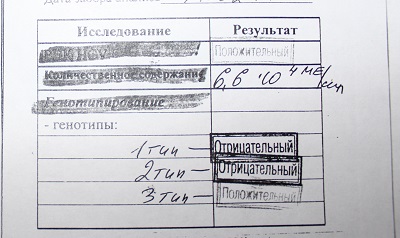 Исследование Результат
Положительный
Количественное содержание 6,6 · 10 4 МЕ/
Генотипирование
- генотипы:
1 тип — Отрицательный
2 тип — Отрицательный
3 тип — Положительный